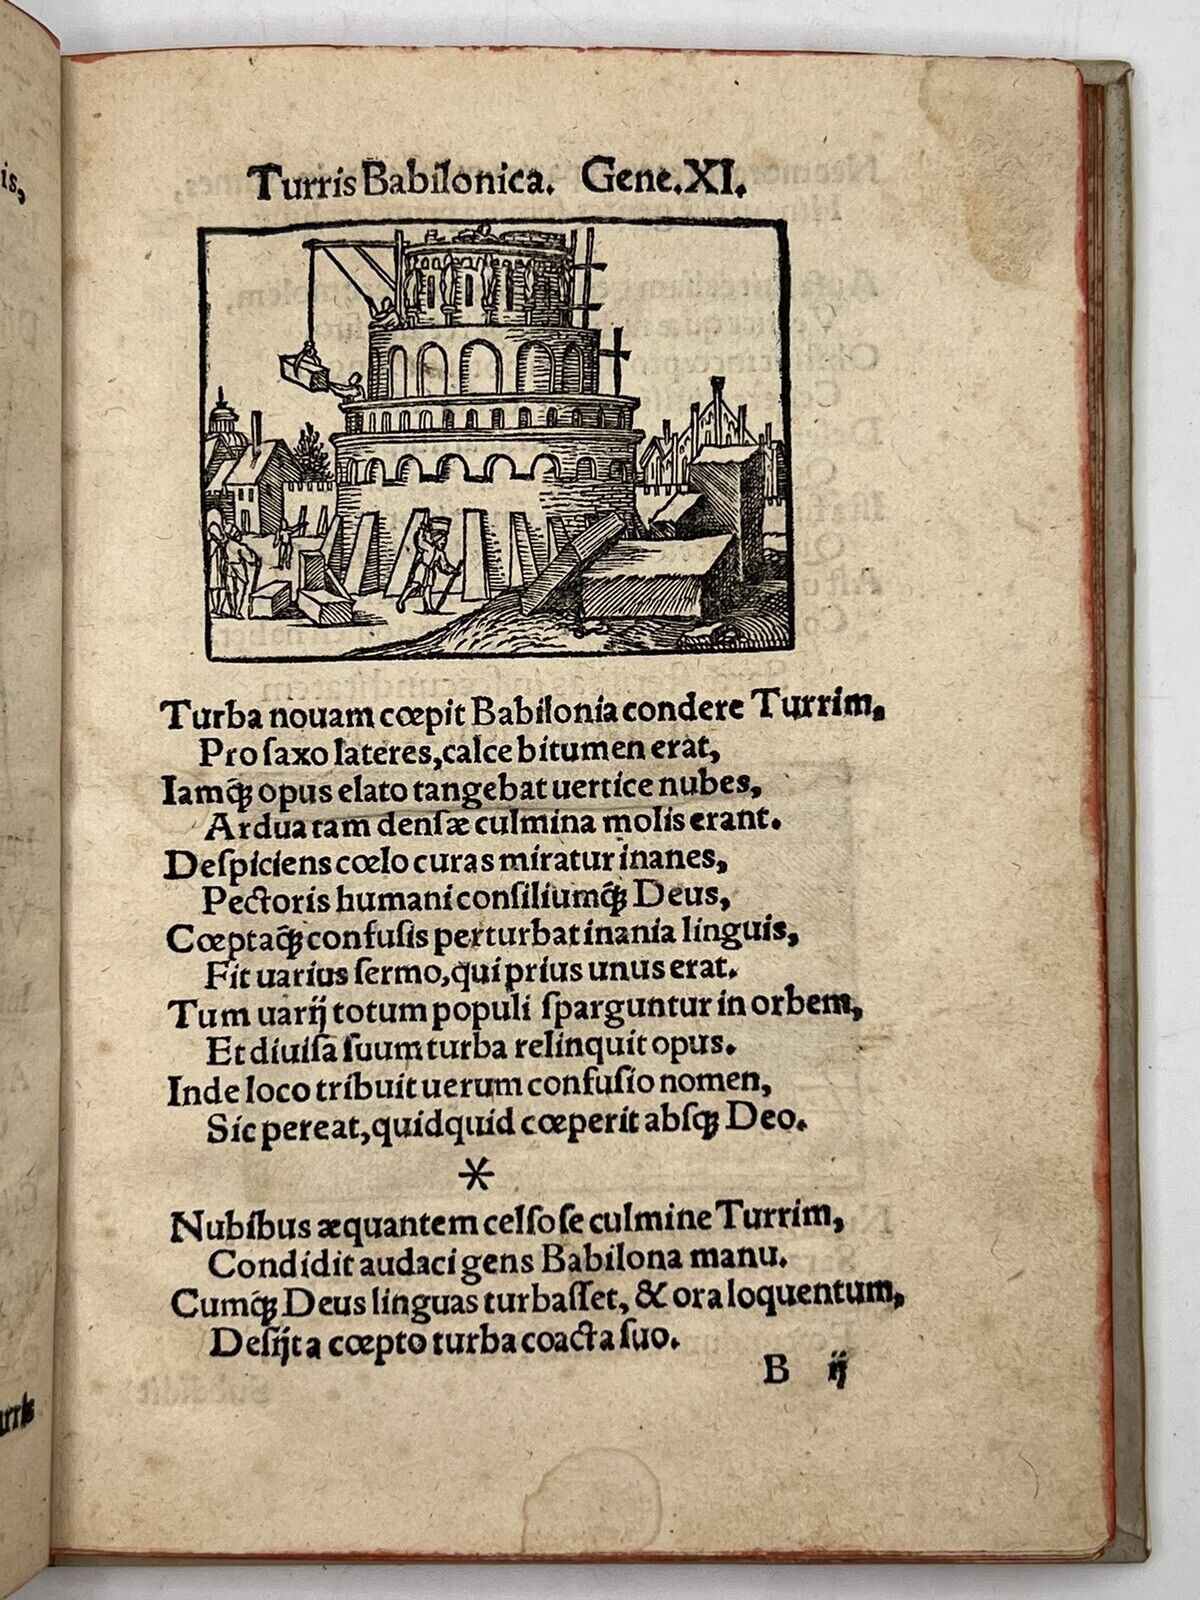 is,
Turris Babilonica. Gene. XI.
Turba nouam cœpit Babilonia condere Turrim,
Pro ſaxo lateres, calce bitumen erat,
Iamq́ꝫ opus elato tangebat uertice nubes,
Ardua tam denſæ culmina molis erant.
Deſpiciens cœlo curas miratur inanes,
Pectoris humani conſiliumq́ꝫ Deus,
Cœptaq́ꝫ confuſis perturbat inania linguis,
Fit uarius ſermo, qui prius unus erat.
Tum uarij totum populi ſparguntur in orbem,
Et diuiſa ſuum turba relinquit opus.
Inde loco tribuit uerum confuſio nomen,
Sic pereat, quidquid cœperit abſqꝫ Deo.
*
Nubibus æquantem celſo ſe culmine Turrim,
Condidit audaci gens Babilona manu.
Cumq́ꝫ Deus linguas turbaſſet, & ora loquentum,
Deſijt a cœpto turba coacta ſuo.
B ij
urris